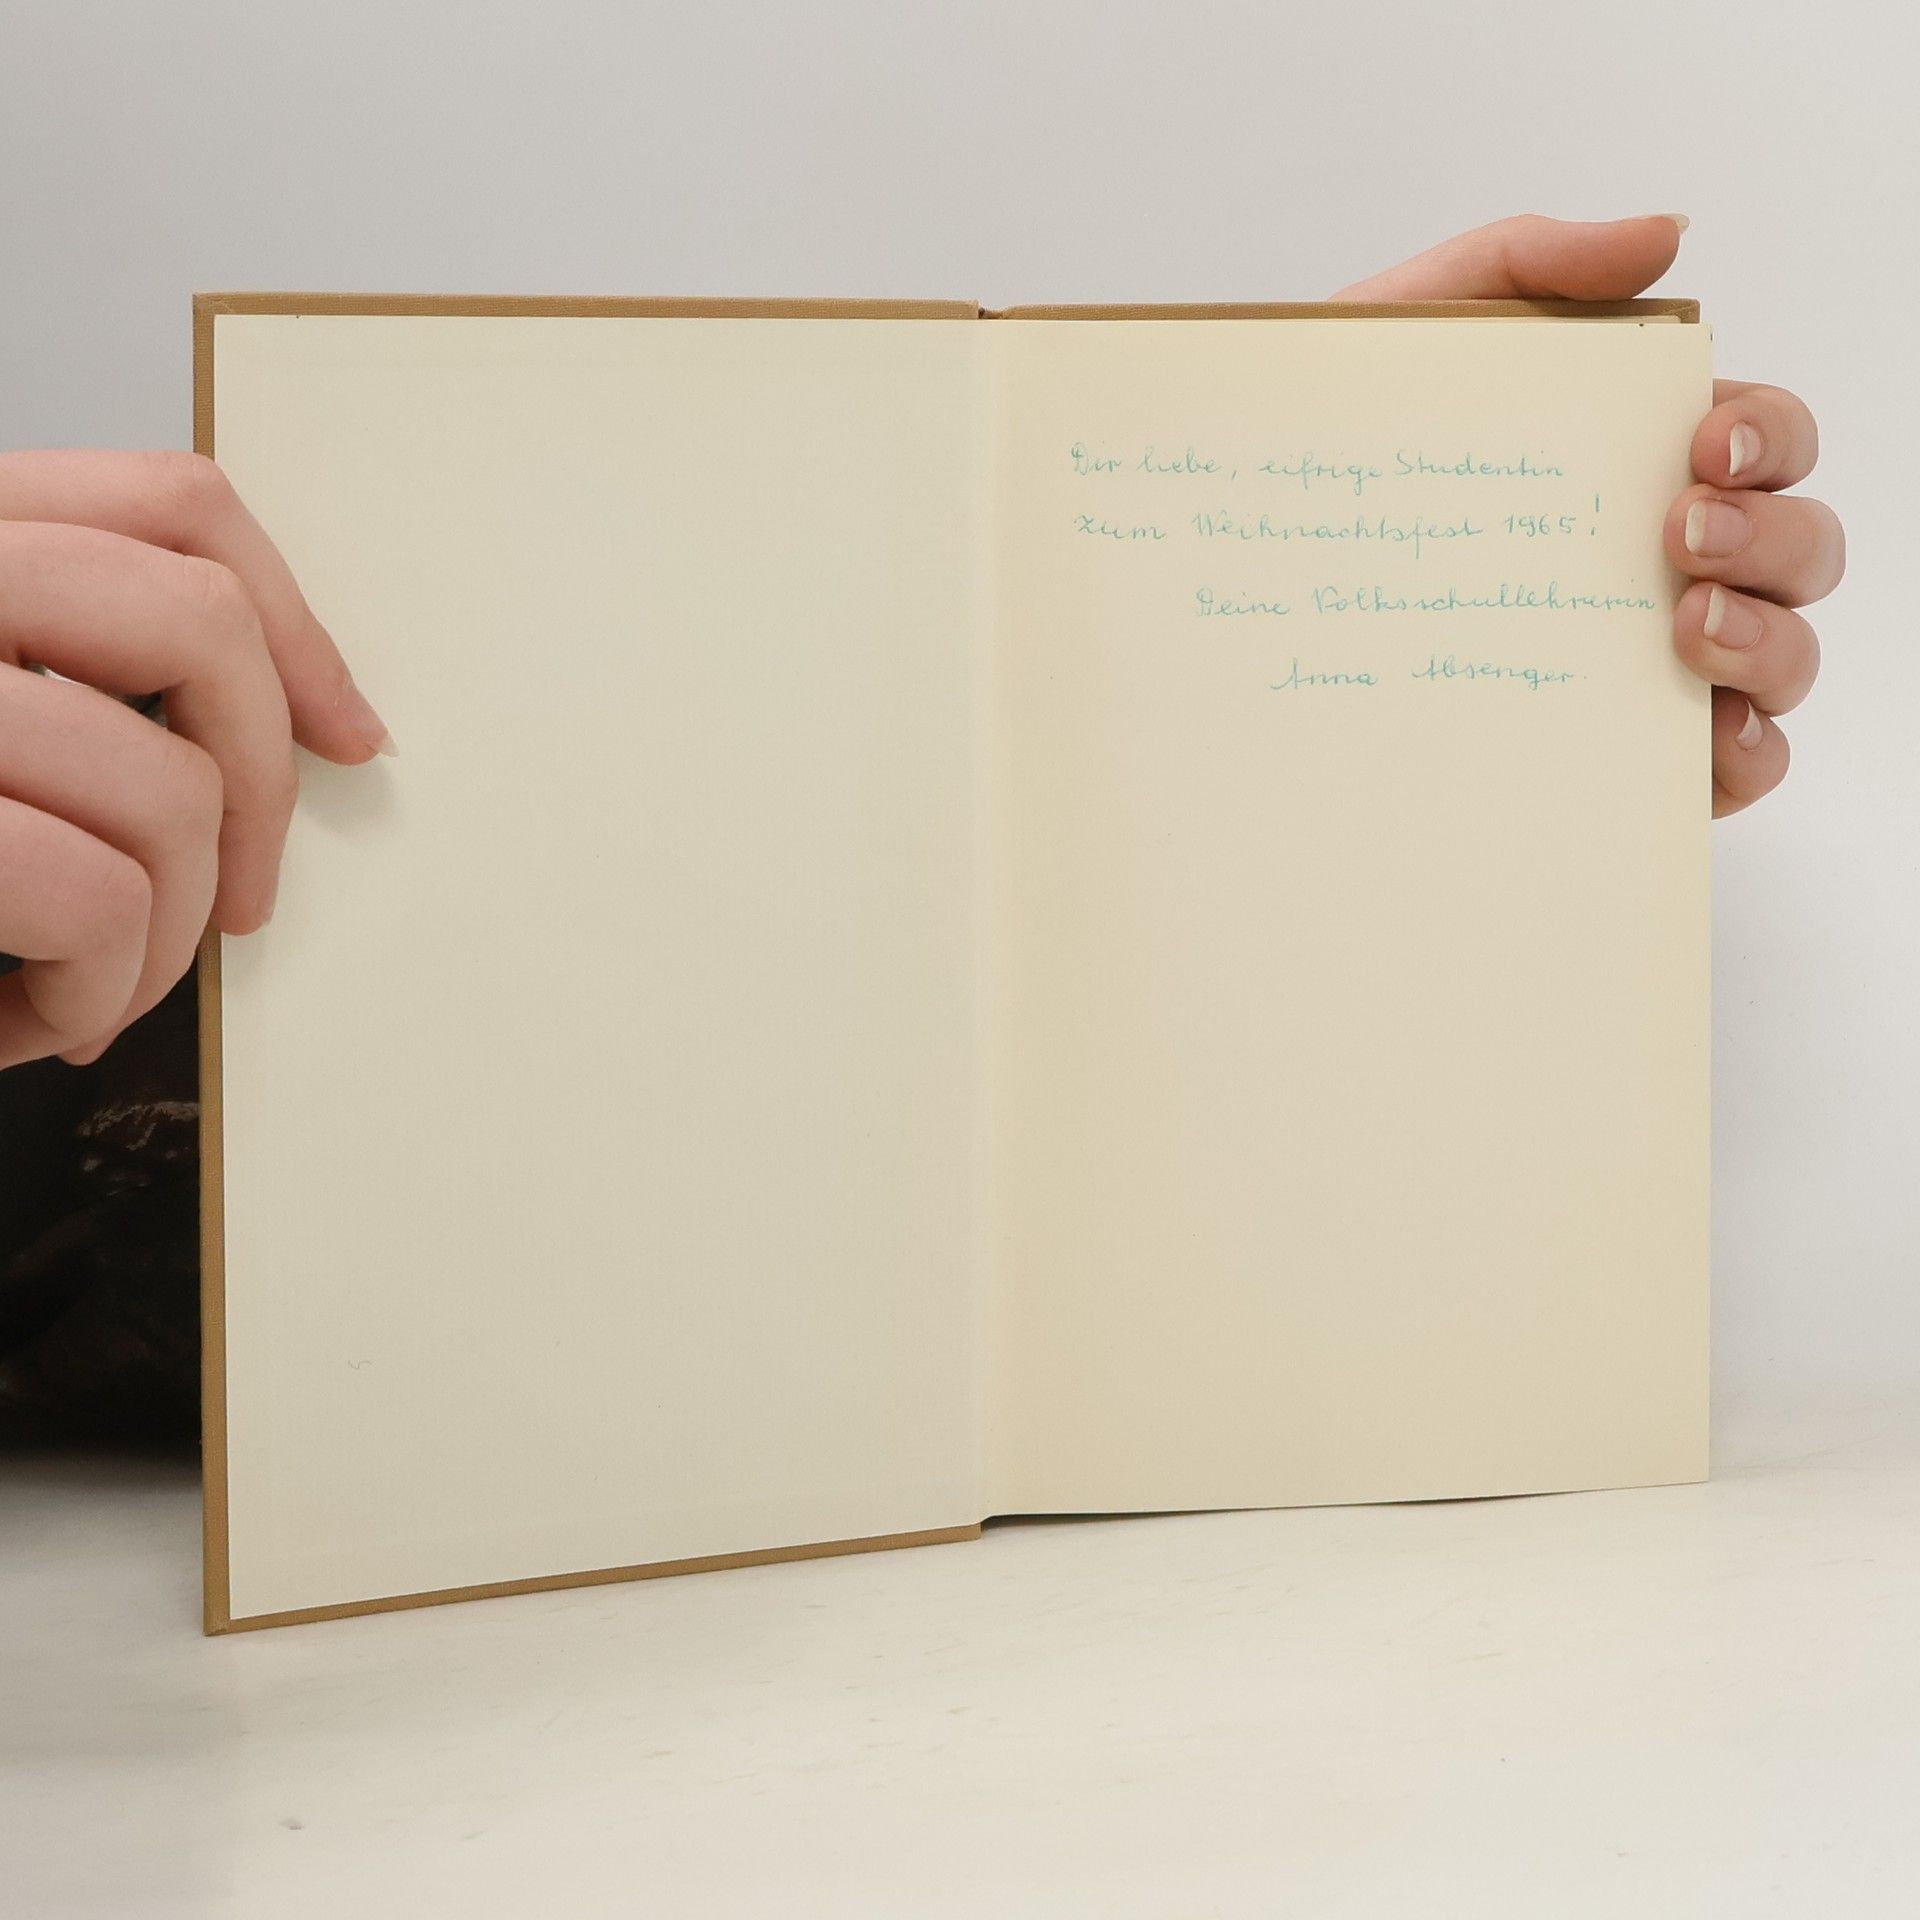 Dir liebe, eifrige Studentin
zum Weihnachtsfest 1965!
Deine Volksschullehrerin
Anna Absenger.